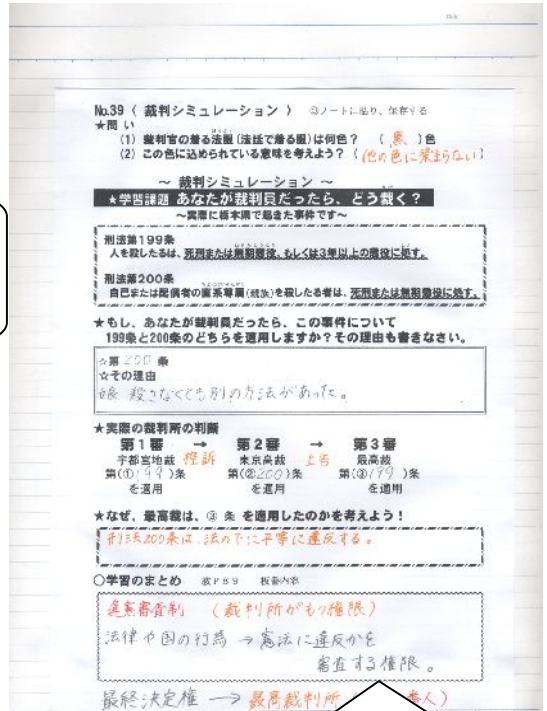 No.39 〈 裁判シミュレーション 〉 ◎ノートに貼り、保存する
★問 い
(1) 裁判官の着る法服(法廷で着る服)は何色? ( 黒 )色
(2) この色に込められている意味を考えよう? (他の色に染まらない)
~ 裁判シミュレーション ~
★学習課題 あなたが裁判員だったら、どう裁く?
~実際に栃木県で起きた事件です~
刑法第199条
人を殺したるは、死刑または無期懲役、もしくは3年以上の懲役に処す。
刑法第200条
自己または配偶者の直系尊属(親族)を殺した者は、死刑または無期懲役に処す。
★もし、あなたが裁判員だったら、この事件について
199条と200条のどちらを適用しますか?その理由も書きなさい。
☆第 200 条
☆その理由
娘 殺さなくても別の方法があった。
★実際の裁判所の判断
第1審 → 第2審 → 第3審
宇都宮地裁 控訴 東京高裁 上告 最高裁
第(①199)条 第(②200)条 第(③199)条
を適用 を適用 を適用
★なぜ、最高裁は、③ 条 を適用したのかを考えよう!
刑法200条は、法の下に平等に違反する。
○学習のまとめ 教P89 板書内容
違憲審査制 (裁判所がもつ権限)
法律や国の行為 → 憲法に違反かを
審査する権限。
最終決定権 → 最高裁判所 ( 番人)